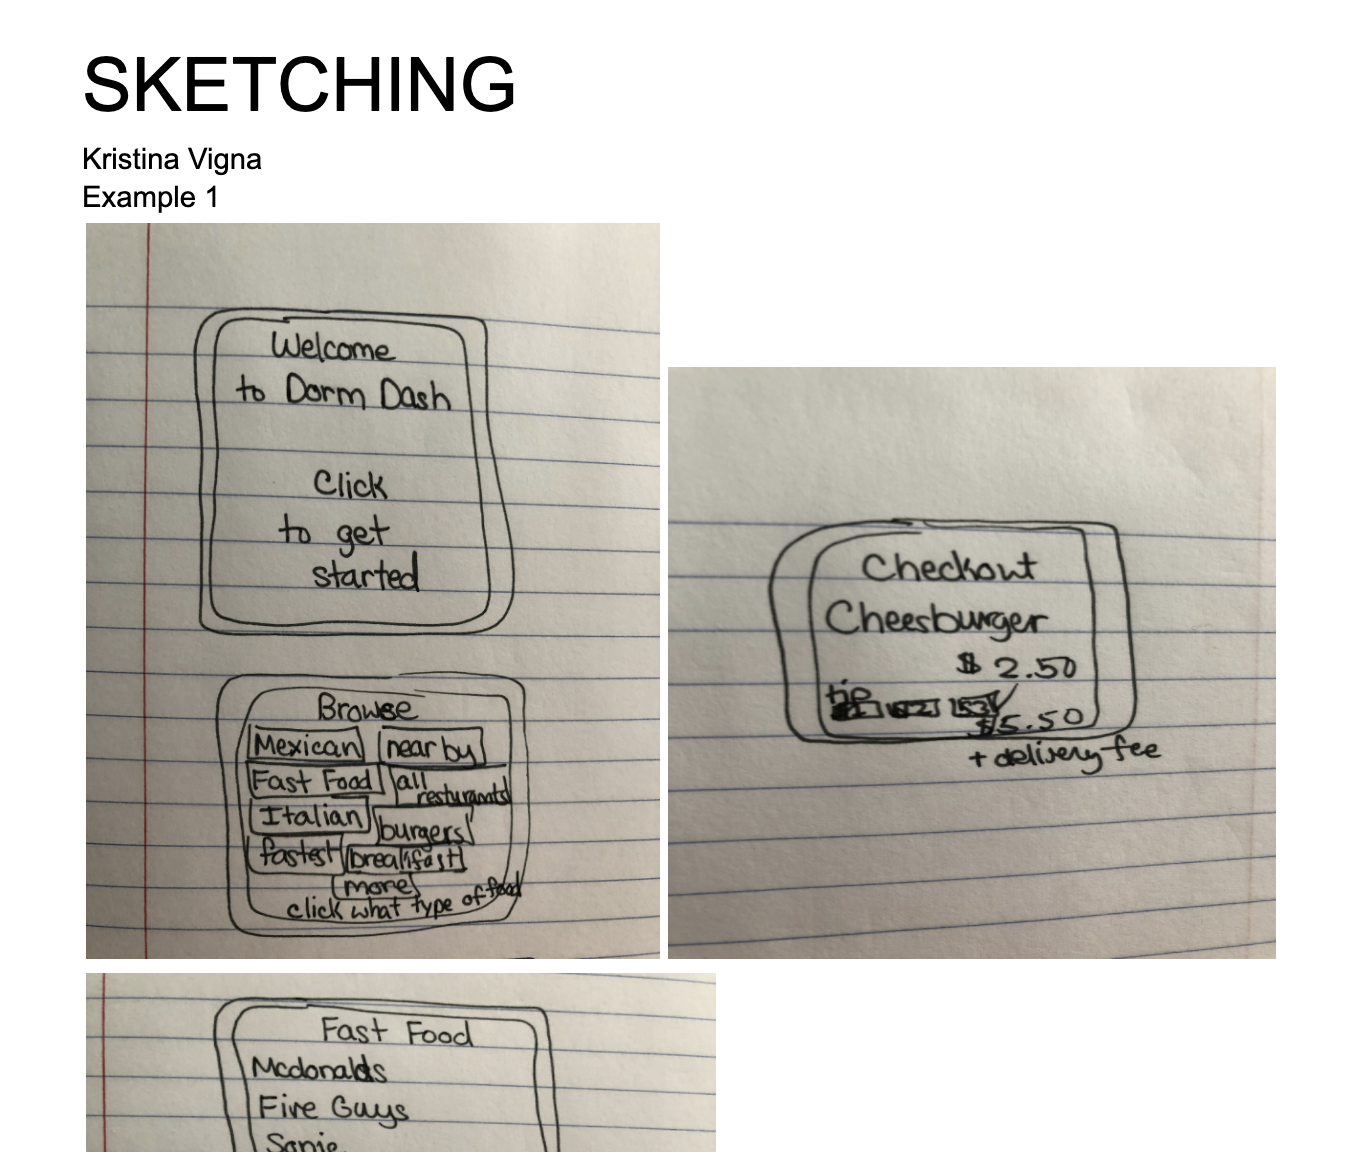 SKETCHING
Kristina Vigna
Example 1
Welcome
to Dorm Dash
Click
to get
started
Browse
Mexican nearby
Fast Food all
resturants
Italian burgers
fastest breakfast
more
click what type of food
Checkout
Cheesburger
$ 2.50
tip
$1 $2 $3
$5.50
+ delivery fee
Fast Food
Mcdonalds
Five Guys
Sonic